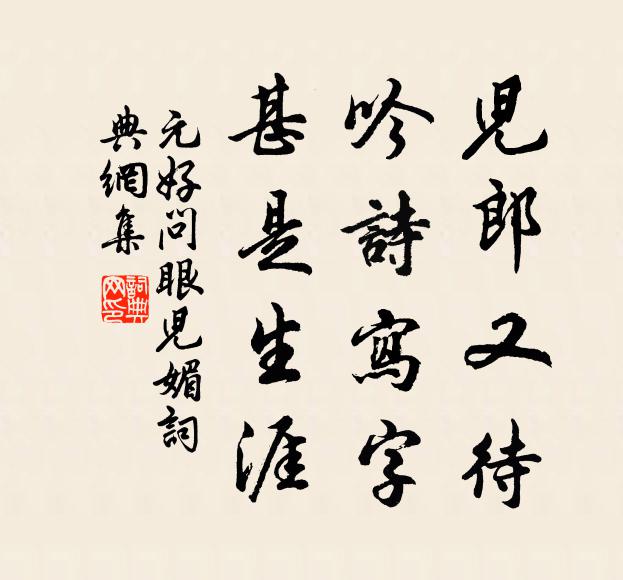 兒郎又待
吟詩寫字
甚是生涯
元好問眼兒媚詞
典網集
詞典
网印